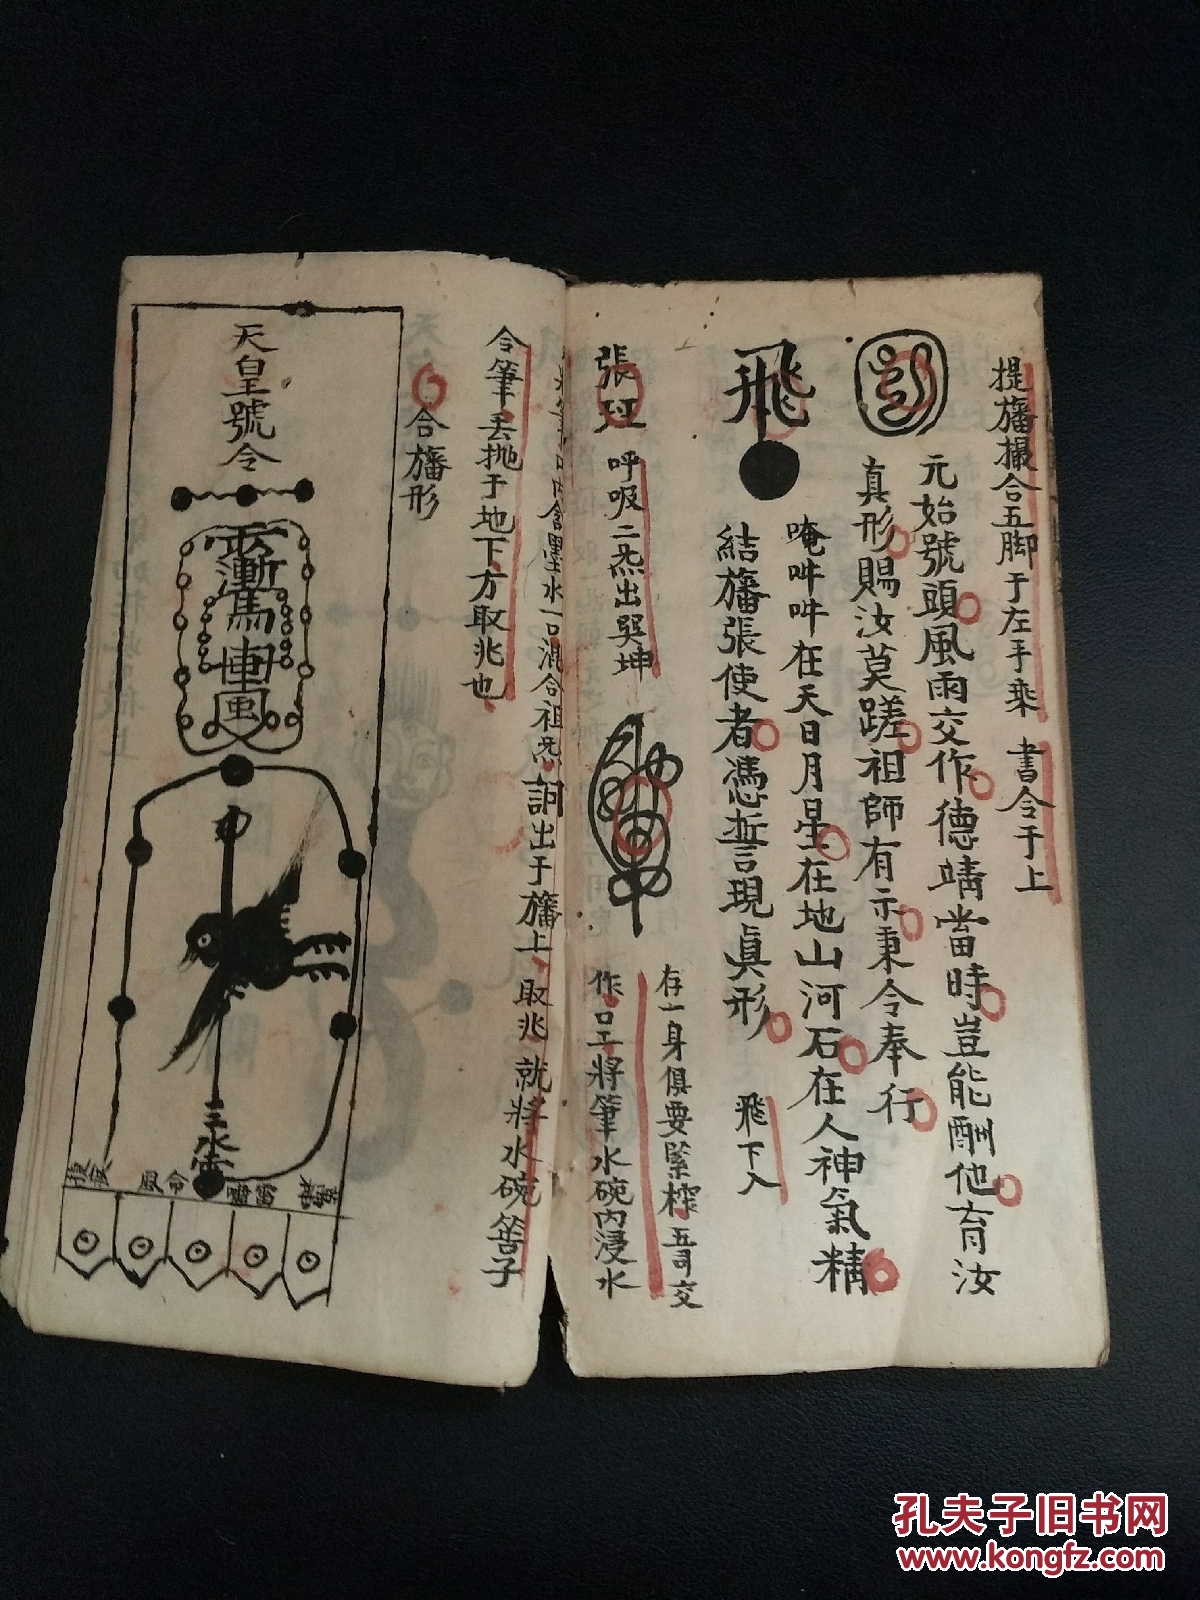 提旛撮合五脚于左手乘 書令于上
元始號頭風雨交作德靖當時豈能酬他育汝
真形賜汝莫蹉祖師有示秉令奉行
唵吽吽在天日月星在地山河石在人神氣精
飛
結旛張使者憑誓言現真形 飛下入
存一身俱要緊榨五司交
張
呼吸二炁出巽坤
作口工將筆水碗内浸水
含墨水一口混合祖炁訶出于旛上取兆就將水碗筶子
令筆丢抛于地下方取兆也
合旛形
天皇號令
水雷
孔夫子旧书网
www.kongfz.com